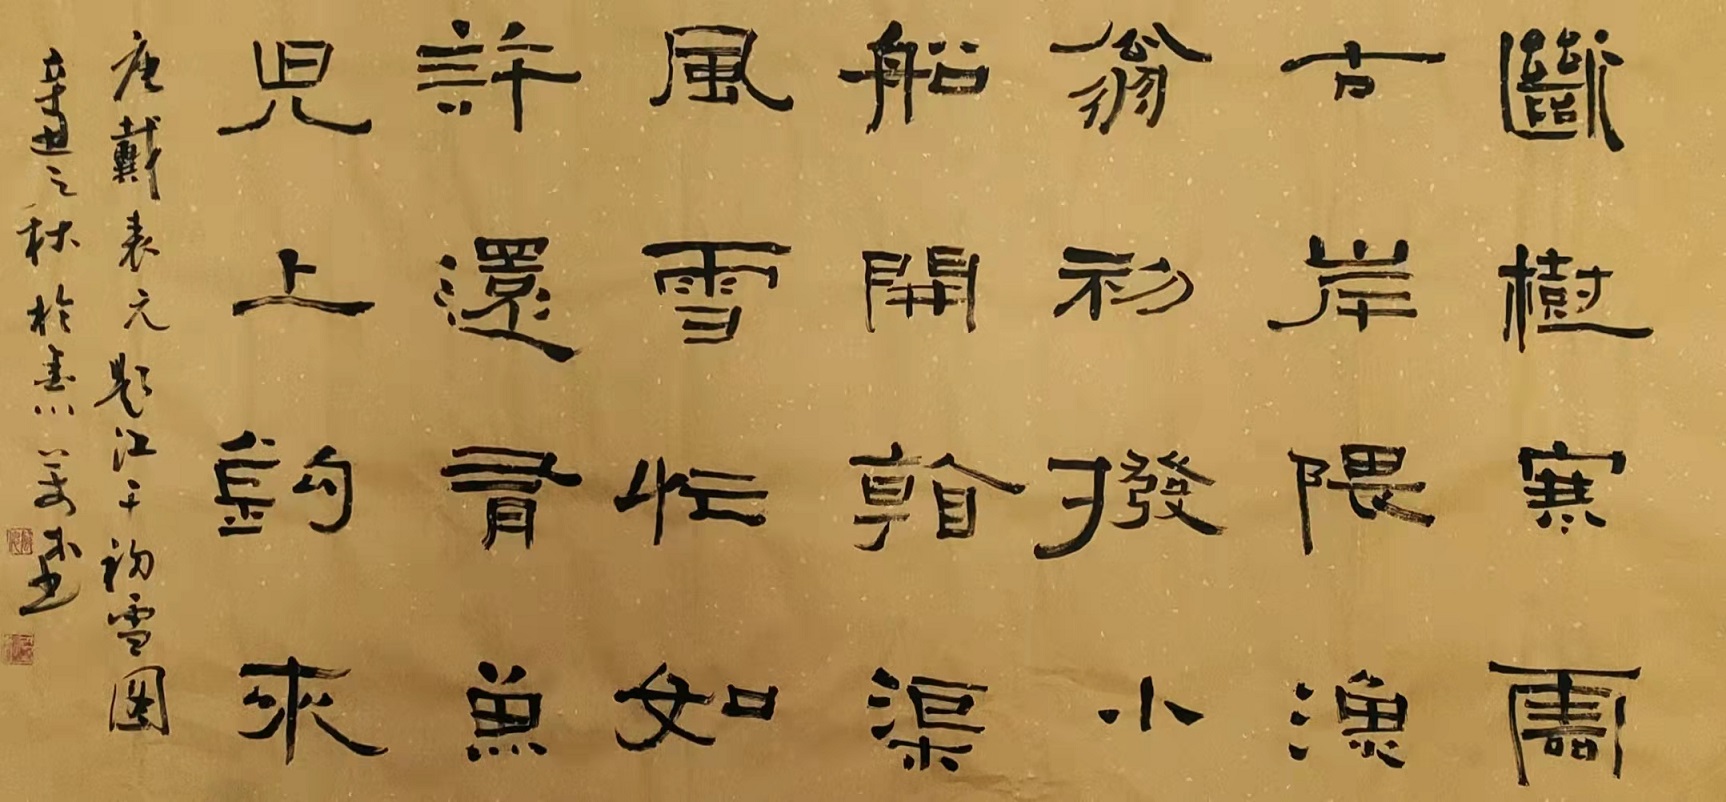 斷樹寒雲
古岸隈漁
翁初撥小
船開韓渠
風雪忙如
許還有魚
兒上釣來
唐戴表元題江干初雪圖
辛丑之秋於惠州